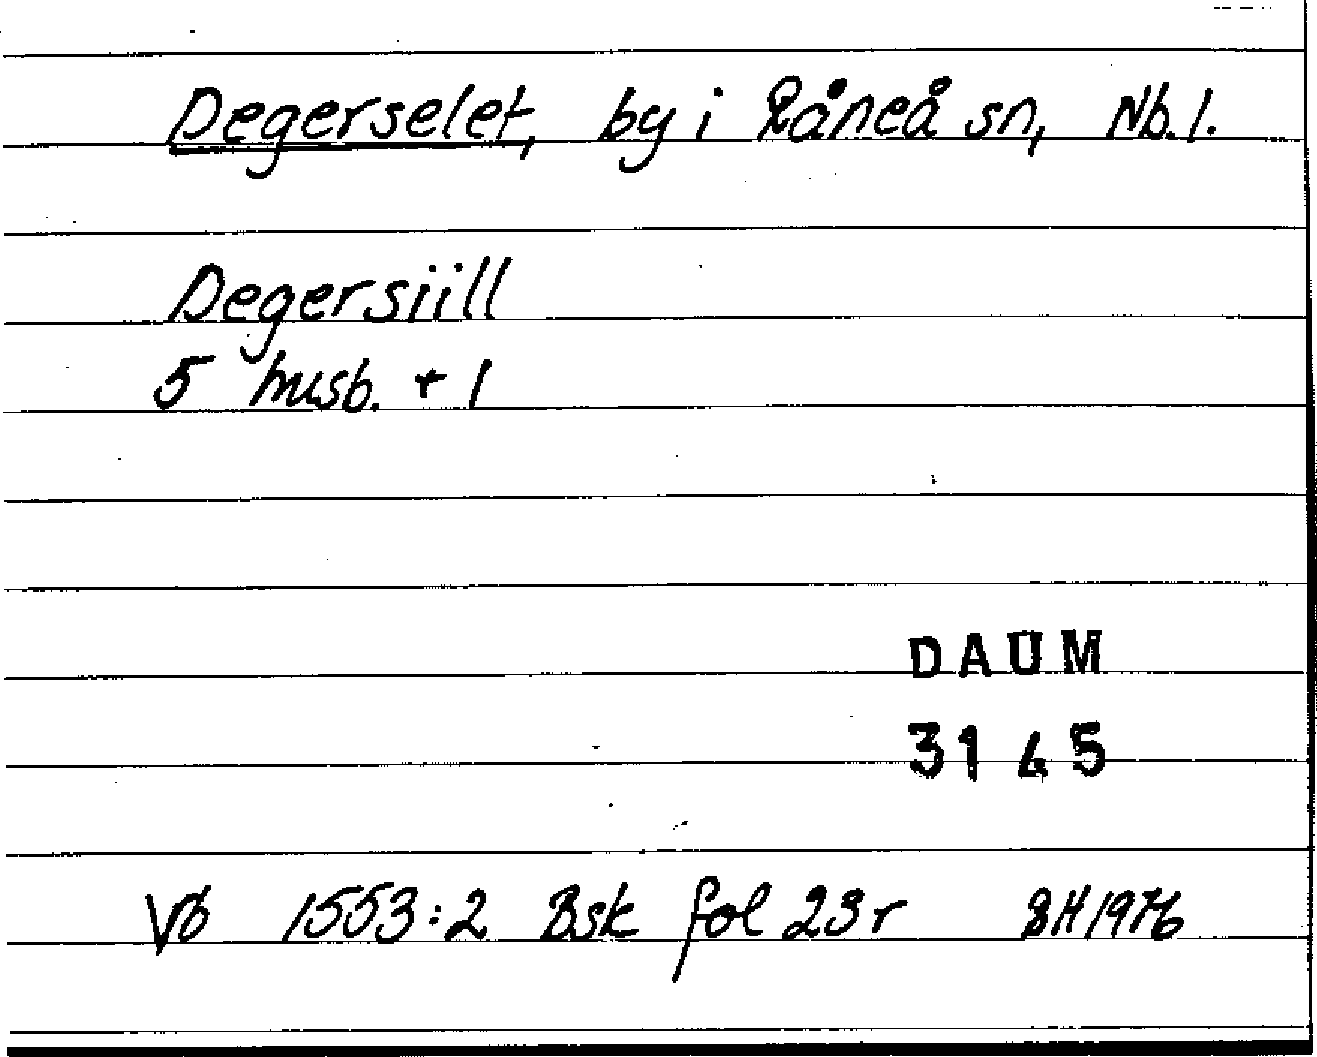 Degerselet, by i Råneå sn, Nb. l.
Degersiill
5 husb. + 1
DAUM
3145
Vb 1553:2 Bsk fol 23r GH 1976